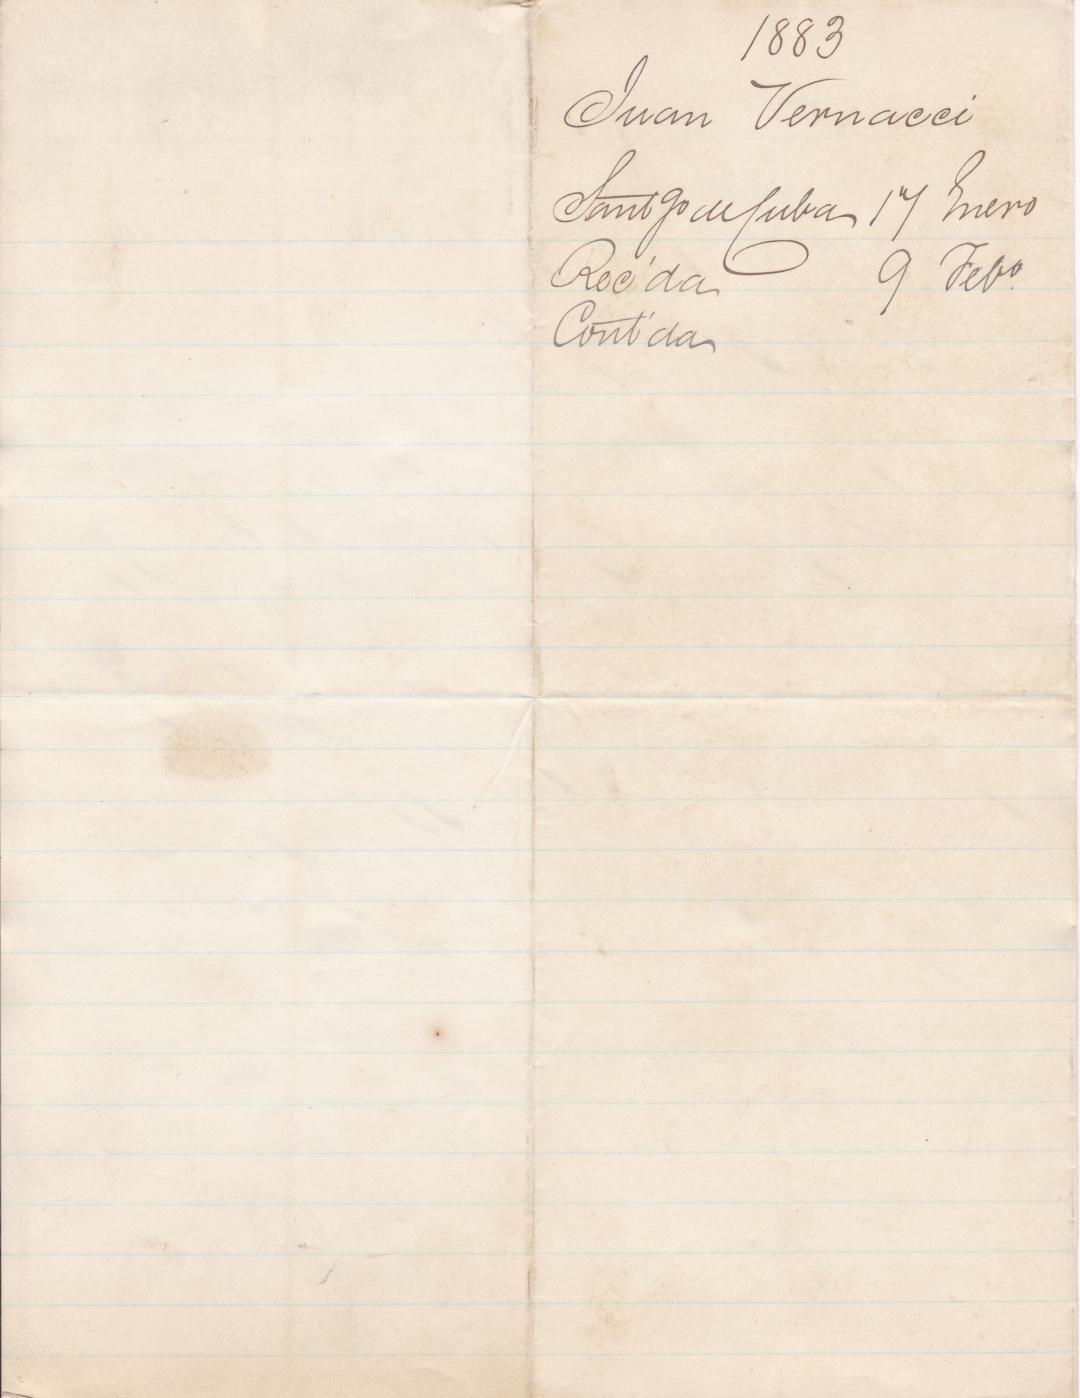 1883
Juan Vernacci
Santgo de Cuba 17 Enero
Rec'da 9 Febo.
Cont'da